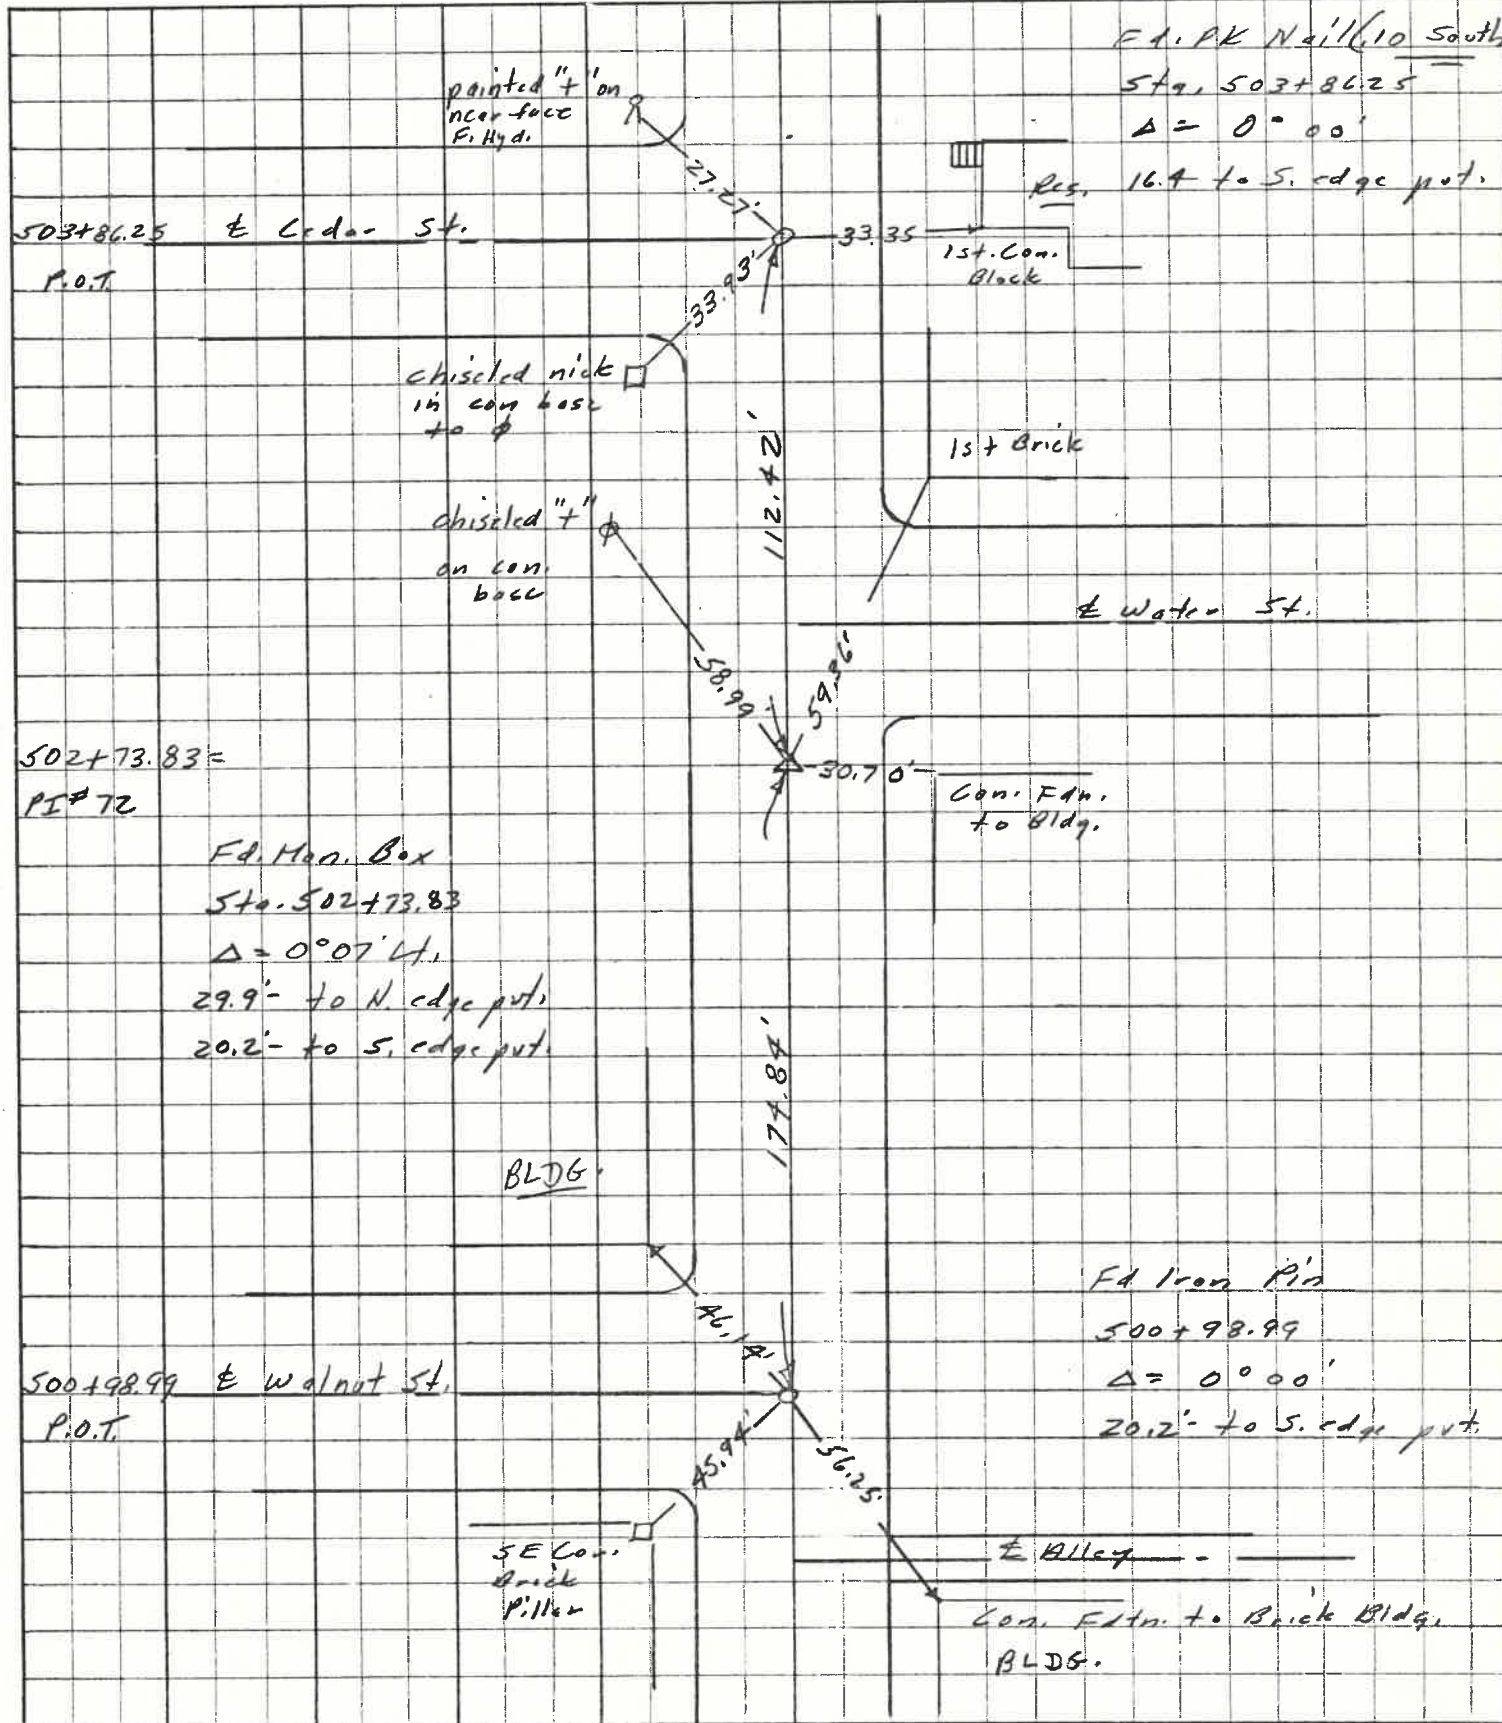 Fd. PK Nail (.10 South
Sta. 503+86.25
Δ = 0° 00'
16.4 to S. edge pvt.
painted "+" on
near face
F. Hyd.
27.27'
Res.
503+86.25 ℄ Cedar St.
P.O.T.
33.35
1st. Con.
Block
33.93'
chiseled nick
in con base
to ϕ
112.42'
1st Brick
chiseled "+"
on con.
base
℄ Water St.
58.99'
59.36'
502+73.83 =
PI# 72
30.70'
Con. Fdn.
to Bldg.
Fd. Mon. Box
Sta. 502+73.83
Δ = 0°07' Lt.
29.9'- to N. edge pvt.
20.2'- to S. edge pvt.
174.84'
BLDG.
Fd Iron Pin
500+98.99
Δ = 0° 00'
20.2'- to S. edge pvt.
46.14'
500+98.99 ℄ Walnut St.
P.O.T.
45.94'
56.25'
SE Cor.
Brick
Pillar
℄ Alley
Con. Fdtn. to Brick Bldg.
BLDG.